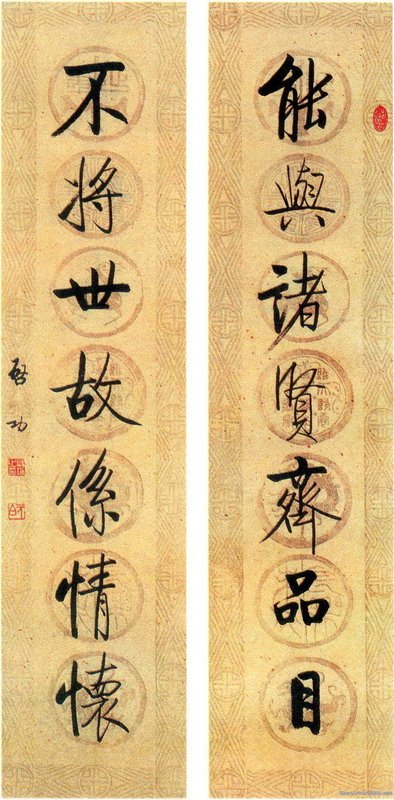 能與諸賢薺品目
不將世故係情懷
啓功